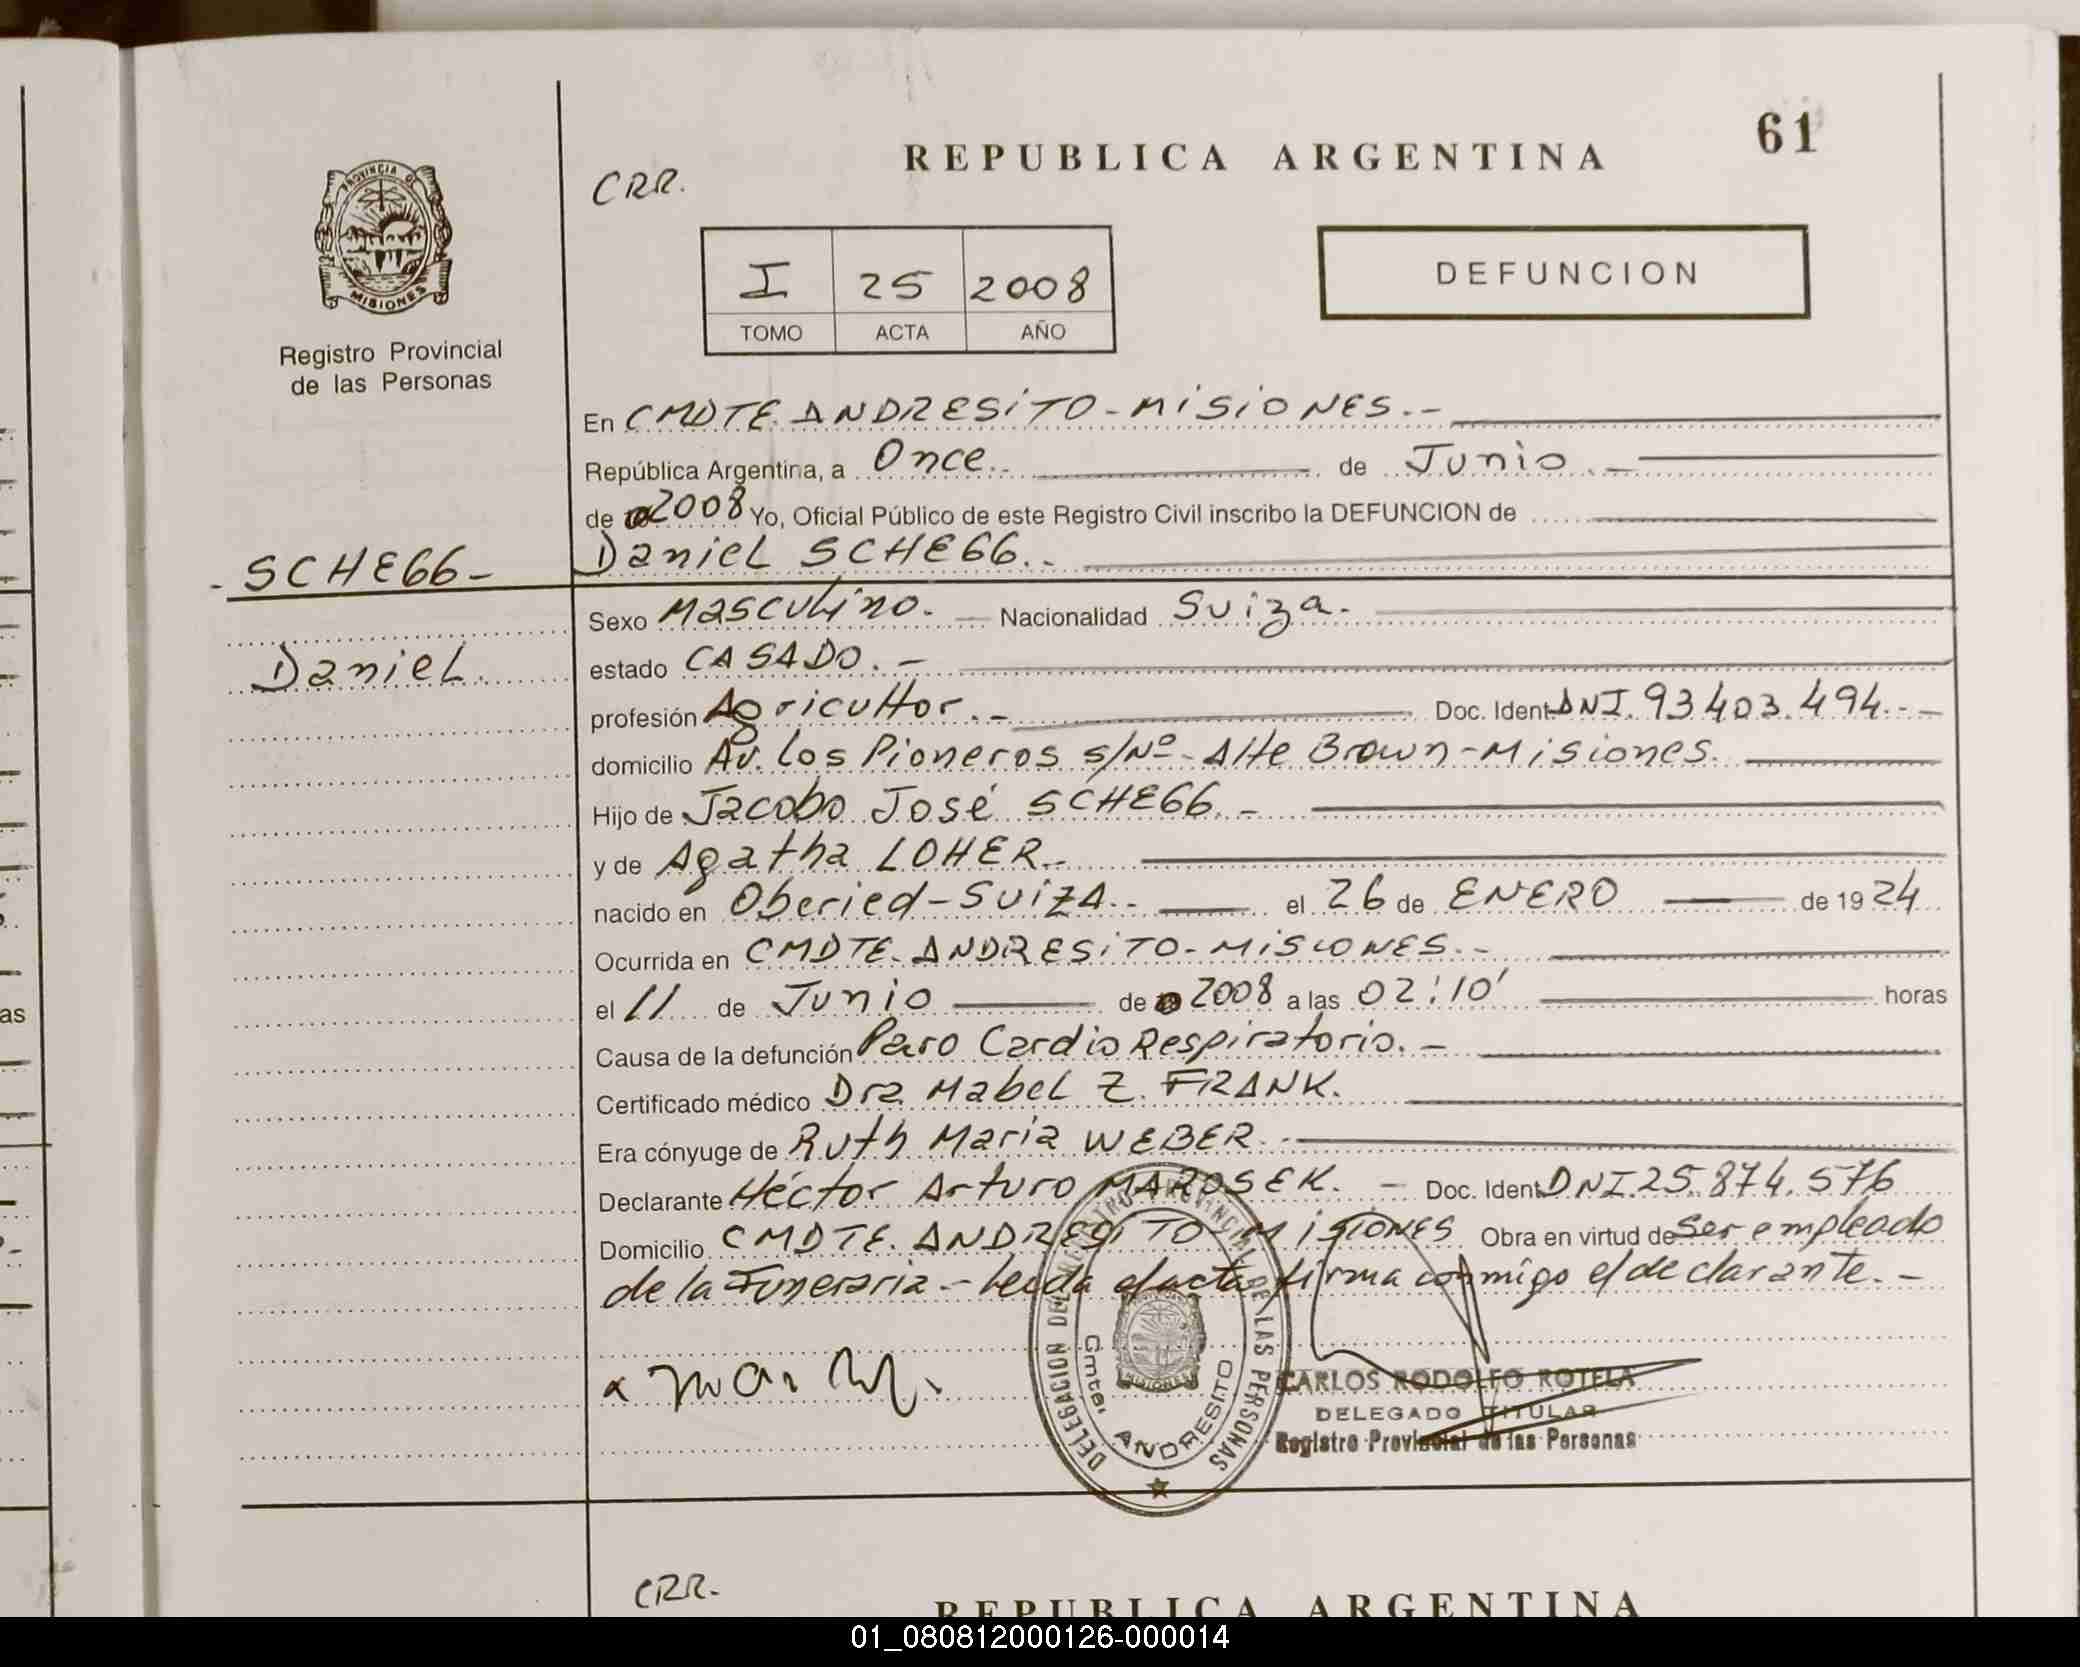 61
REPUBLICA ARGENTINA
CRR.
PROVINCIA DE
MISIONES
Registro Provincial
de las Personas
I 25 2008
TOMO ACTA AÑO
DEFUNCION
En CMDTE. ANDRESITO - MISIONES.-
República Argentina, a Once.- de Junio.-
de 2008 Yo, Oficial Público de este Registro Civil inscribo la DEFUNCION de
- SCHEGG - Daniel SCHEGG.-
Sexo Masculino.- Nacionalidad Suiza.-
Daniel. estado CASADO.-
profesión Agricultor.- Doc. Ident. DNI. 93.403.494.-
domicilio Av. Los Pioneros s/Nº - Alte Brown - Misiones.
Hijo de Jacobo José SCHEGG.-
y de Agatha LOHER.-
nacido en Oberied - SUIZA.- el 26 de ENERO de 1924
Ocurrida en CMDTE. ANDRESITO - MISIONES.-
el 11 de Junio de 2008 a las 02:10' horas
Causa de la defunción Paro Cardio Respiratorio.-
Certificado médico Dra Mabel Z. FRANK.
Era cónyuge de Ruth Maria WEBER.-
Declarante Héctor Arturo MAROSEK. - Doc. Ident. DNI. 25.874.576
Domicilio CMDTE. ANDRESITO - MISIONES Obra en virtud de Ser empleado
de la Funeraria - Leida el acta firma conmigo el declarante.-
DELEGACION DEL REGISTRO PROVINCIAL DE LAS PERSONAS
MISIONES
Cmte. ANDRESITO
CARLOS RODOLFO ROTELA
DELEGADO TITULAR
Registro Provincial de las Personas
CRR.
REPUBLICA ARGENTINA
as
01_080812000126-000014